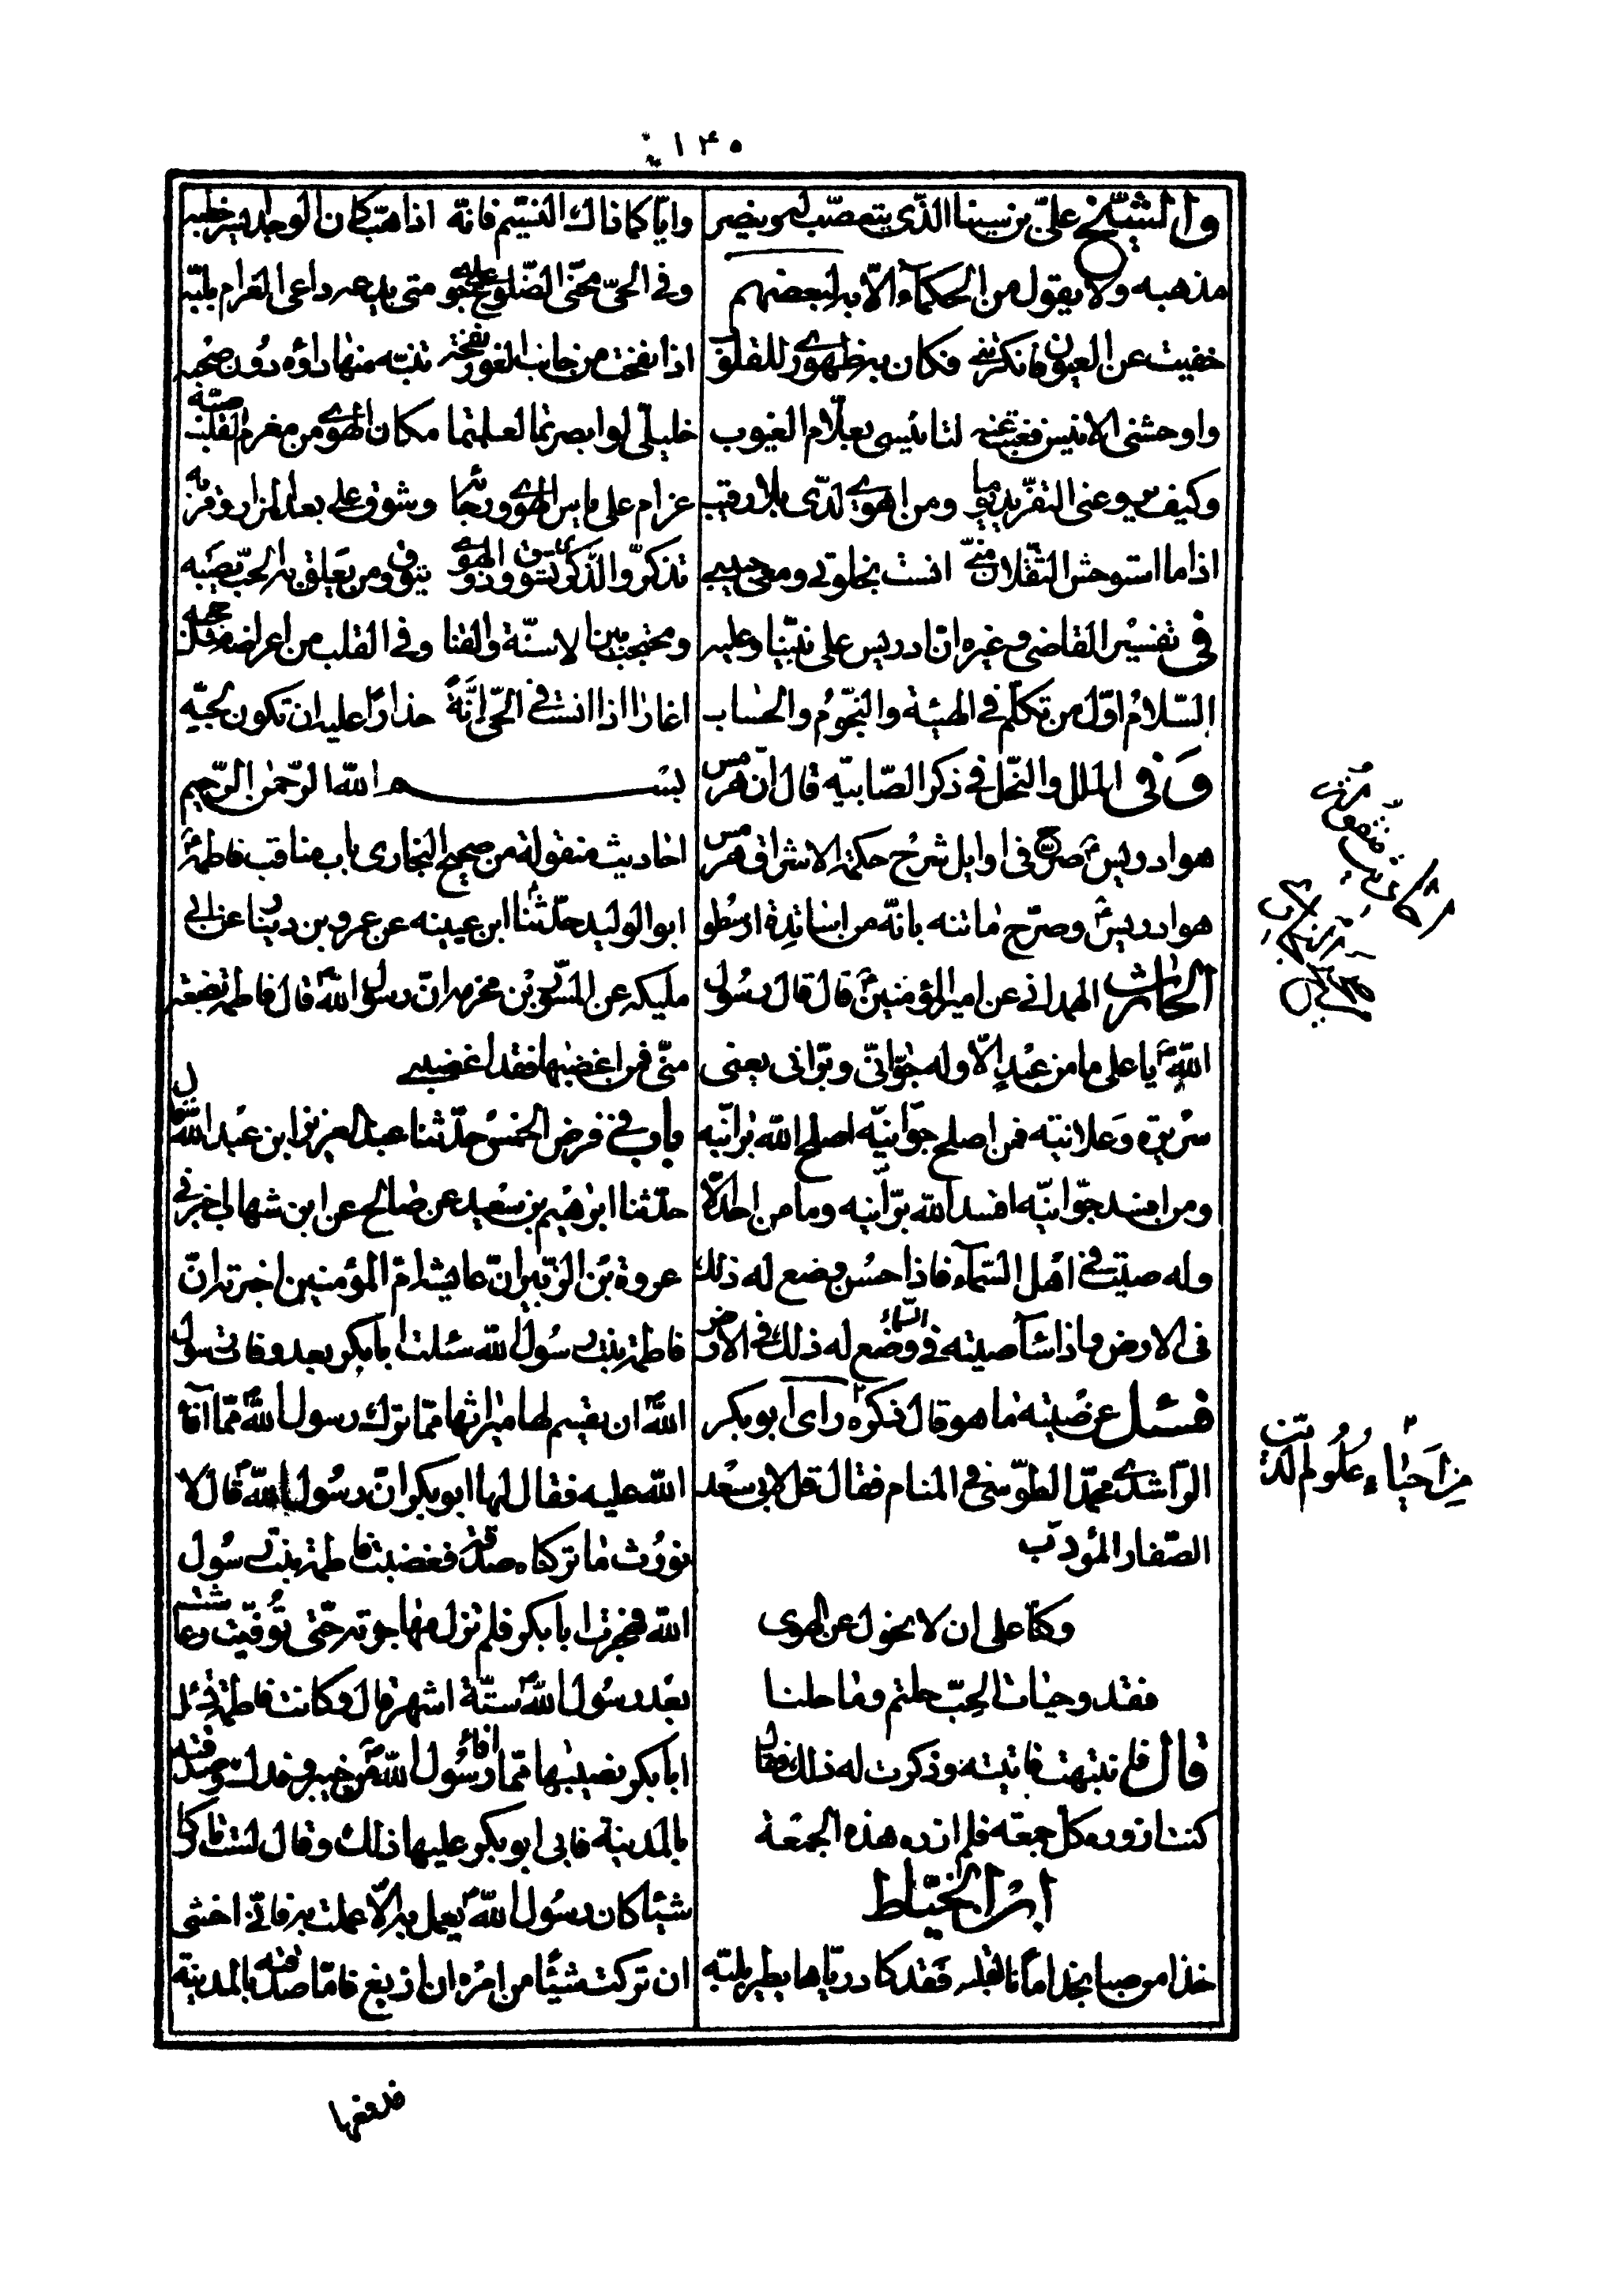 ۱۴۰
والشیخ علیّ بن سینا الذّی یتعصّب له وینصر
مذهبه ولا یقول من الحکماء الّا به لبعضهم
خفیت عن العیون فانکرتنی فکان به ظهوری للقلوب
واوحشنی الانیس فغبت عنه لتانیسی بعلّام الغیوب
وکیف یروعنی التفرید یوما ومن اهوی لدّی بلا رقیب
اذا ما استوحش الثقلان منّی انست بخلوتی ومعی حبیبی
فی تفسیر القاضی وغیره انّ ادریس علی نبیّنا وعلیه
السّلام اوّل من تکلّم فی الهیئة والنّجوم والحساب
وفی الملل والنّحل فی ذکر الصّابیّه قال انّ هرمس
هو ادریس صرّح فی اوایل شرح حکمة الاشراق هرمس
هو ادریس وصرّح ماتنه بانّه من اساتذة ارسطو
الحارث الهمدانی عن امیرالمؤمنین قال قال رسول
الله یا علی ما من عبد الّا وله جوّانّی وبرّانی یعنی
سریرة وعلانیته فمن اصلح جوّانیّه اصلح الله برّانیّه
ومن افسد جوّانیّه افسد الله برّانیه وما من احد الّا
وله صیت فی اهل السّماء فاذا حسن وضع له ذلک
فی الارض واذا ساء صیته فی السّماء وضع له ذلک فی الارض
فسئل عن صیته ما هو قال ذکره رای ابوبکر
الرّاشدی محمّد الطوّسی فی المنام فقال قل لابی سعد
الصّفار المؤدب
وکنّا علی ان لا نحول عن الهوی
فقد وحیات الحبّ حلتم وما حلنا
قال فلم نتبهت فاتیته وذکرت له ذلک فقال
کنت ازوره کل جمعه فلم ازره هذه الجمعة
ابن الخیّاط
خذا من صبا نجد امانا لقلبه فقد کاد ریّاها یطیر بلبّه
وایّاکما ذاک النسیم فانّه اذا هبّ کان الوجد ایسر خطبه
وفی الحیّ محنّی الضّلوع علی جوی متی یدعه داعی الغرام یلبّه
اذا نفحت من جانب الغور نفحة تنبّه منها داؤه دون صحبه
خلیلّی لو ابصرتما لعلمتما مکان الهوی من مغرم القلب صبّه
غرام علی یاس الهوی ورجائه وشوق علی بعد المزار وقربه
تذکّر والذّکری تشوق وذو الهوی یتوق ومن یعلق به الحبّ یصبه
ومحتجب بین الاسنّة والقنا وفی القلب من اعراضه مثل حجبه
اغار اذا انست فی الحّی انّة حذارا علیه ان تکون لحبّه
بسم الله الرّحمن الرّحیم
احادیث منقولة من صحیح البخاری باب مناقب فاطمة
ابو الولید حدّثنا ابن عیینه عن عمرو بن دینار عن ابی
ملیکه عن المسّور بن مخرمه انّ رسول الله قال فاطمة بضعة
منّی فمن اغضبها فقد اغضبنی
باب فی فرض الخمس حدّثنا عبد العزیز ابن عبد الله قال
حدّثنا ابرهیم بن سعید عن صالح عن ابن شهاب اخبرنی
عروة بن الزّبیر انّ عایشه امّ المؤمنین اخبرته انّ
فاطمة بنت رسول الله سئلت ابابکر بعد وفات رسول
الله ان یقسم لها میراثها ممّا ترک رسول الله ممّا آفاء
الله علیه فقال لها ابوبکر انّ رسول الله قال لا
نورّث ما ترکناه صدقة فغضبت فاطمة بنت رسول
الله فهجرت ابابکر فلم تزل مهاجرته حتّی توفّیت وعاشت
بعد رسول الله ستّة اشهر قال وکانت فاطمة تسئل
ابابکر نصیبها ممّا افاء رسول الله من خیبر وفدک وصدقته
بالمدینة فابی ابوبکر علیها ذلک وقال لست تارکا
شیئا کان رسول الله یعمل به الّا عملت به فانّی اخشی
ان ترکت شیئا من امره ان ازیغ فامّا صدقته بالمدینة
فدفعها
من احیاء علوم الدّین